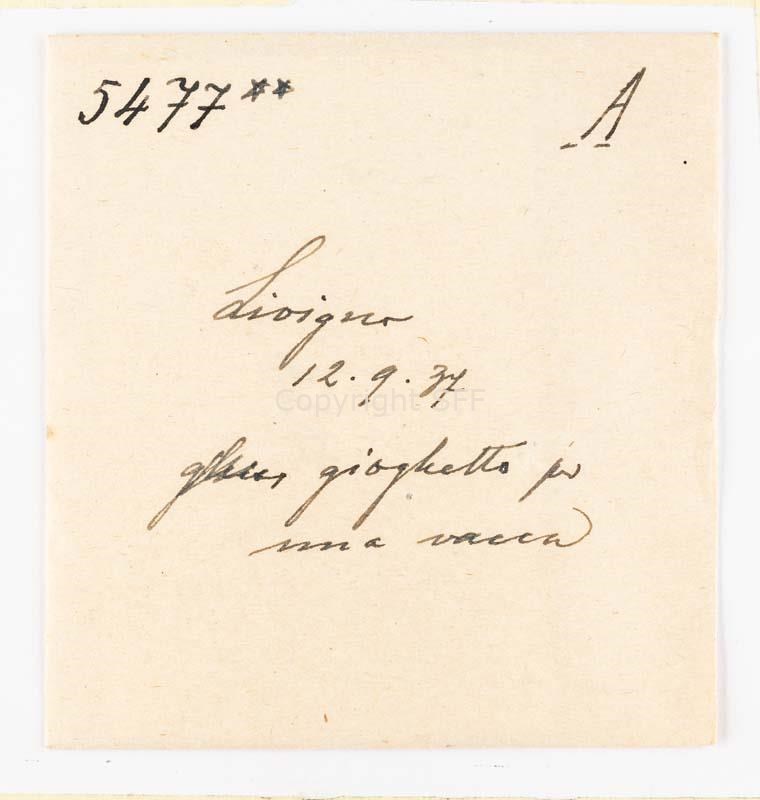 5477** A
Livigno
12.9.37
Copyright SFF
gioghetto per
una vacca